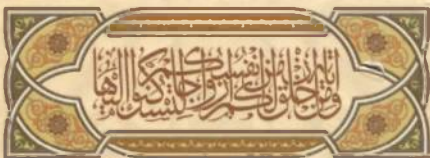 ومن آياته أن خلق لكم من أنفسكم أزواجا لتسكنوا إليها